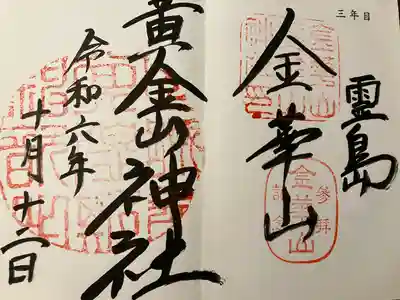 三年目
霊島
金華山
黄金山神社
令和六年
十月十二日